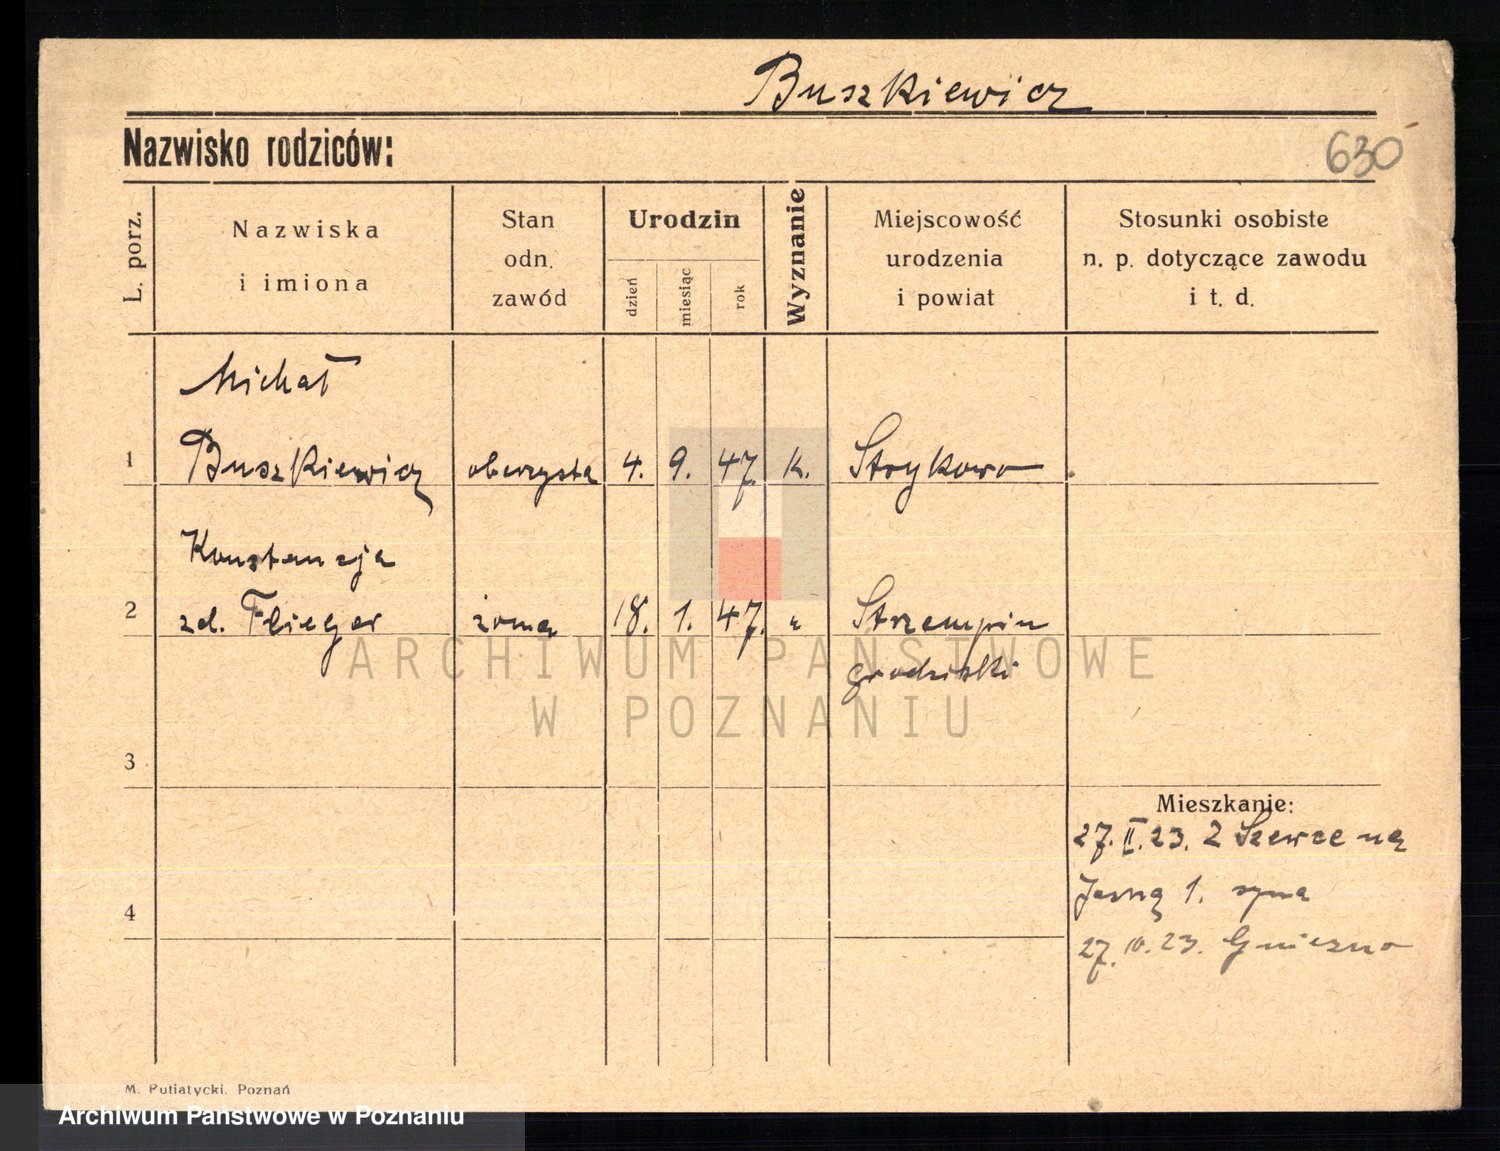 Buszkiewicz
Nazwisko rodziców:
630
L. porz.
Nazwiska
i imiona
Stan
odn.
zawód
Urodzin
dzień
miesiąc
rok
Wyznanie
Miejscowość
urodzenia
i powiat
Stosunki osobiste
n. p. dotyczące zawodu
i t. d.
Michał
1 Buszkiewicz oberzysta 4. 9. 47. k. Strykowo
Konstancja
2 zd. Flieger żona 18. 1. 47. " Strzempin
grodziski
ARCHIWUM PAŃSTWOWE
W POZNANIU
3
Mieszkanie:
27. II. 23. Z Szewce na
4 Jasną 1. syna
27. IV. 23. Gniezno
M. Putiatycki. Poznań
Archiwum Państwowe w Poznaniu